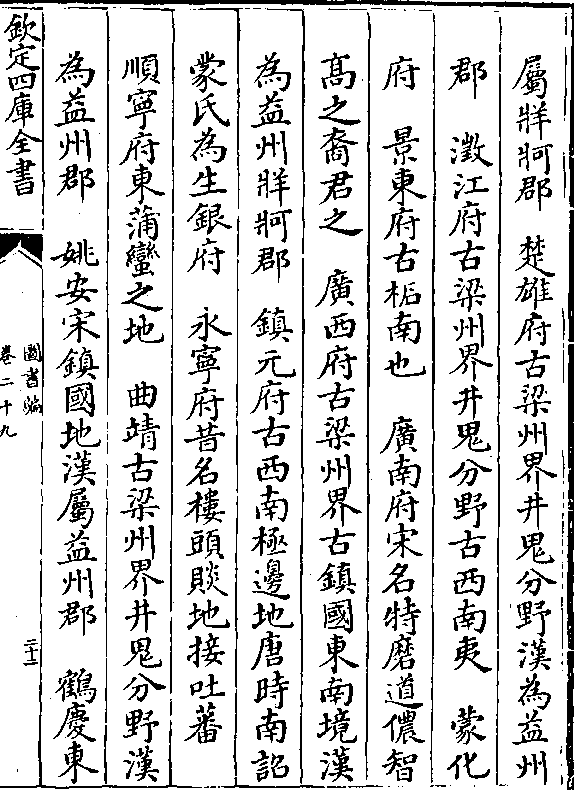 屬牂牁郡　楚雄府古梁州界井鬼分野漢為益州
郡　澂江府古梁州界井鬼分野古西南夷　蒙化
府　景東府古柘南也　廣南府宋名特磨道儂智
髙之裔君之　廣西府古梁州界古鎮國東南境漢
為益州牂牁郡　鎮元府古西南極邊地唐時南詔
蒙氏為生銀府　永寧府昔名樓頭賧地接吐蕃
順寧府東蒲蠻之地　曲靖古梁州界井鬼分野漢
為益州郡　姚安宋鎮國地漢屬益州郡　鶴慶東
欽定四庫全書
圖書編
卷二十九
三十三